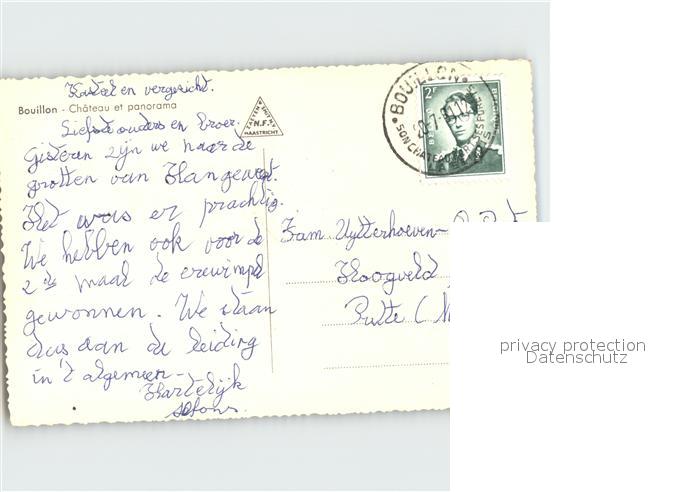 Kasteel en vergezicht.
Bouillon - Château et panorama
Liefste ouders en broer.
Gisteren zijn we naar de
grotten van Han geweest.
Het was er prachtig.
We hebben ook voor de
2de maal de erewimpel
gewonnen. We staan
dus aan de leiding
in 't algemeen.
Hartelijk
N.F.
MAASTRICHT
BOUILLON
SON CHATEAU
2F
Fam Uytterhoeven
Hoogveld
Putte (
privacy protection
Datenschutz